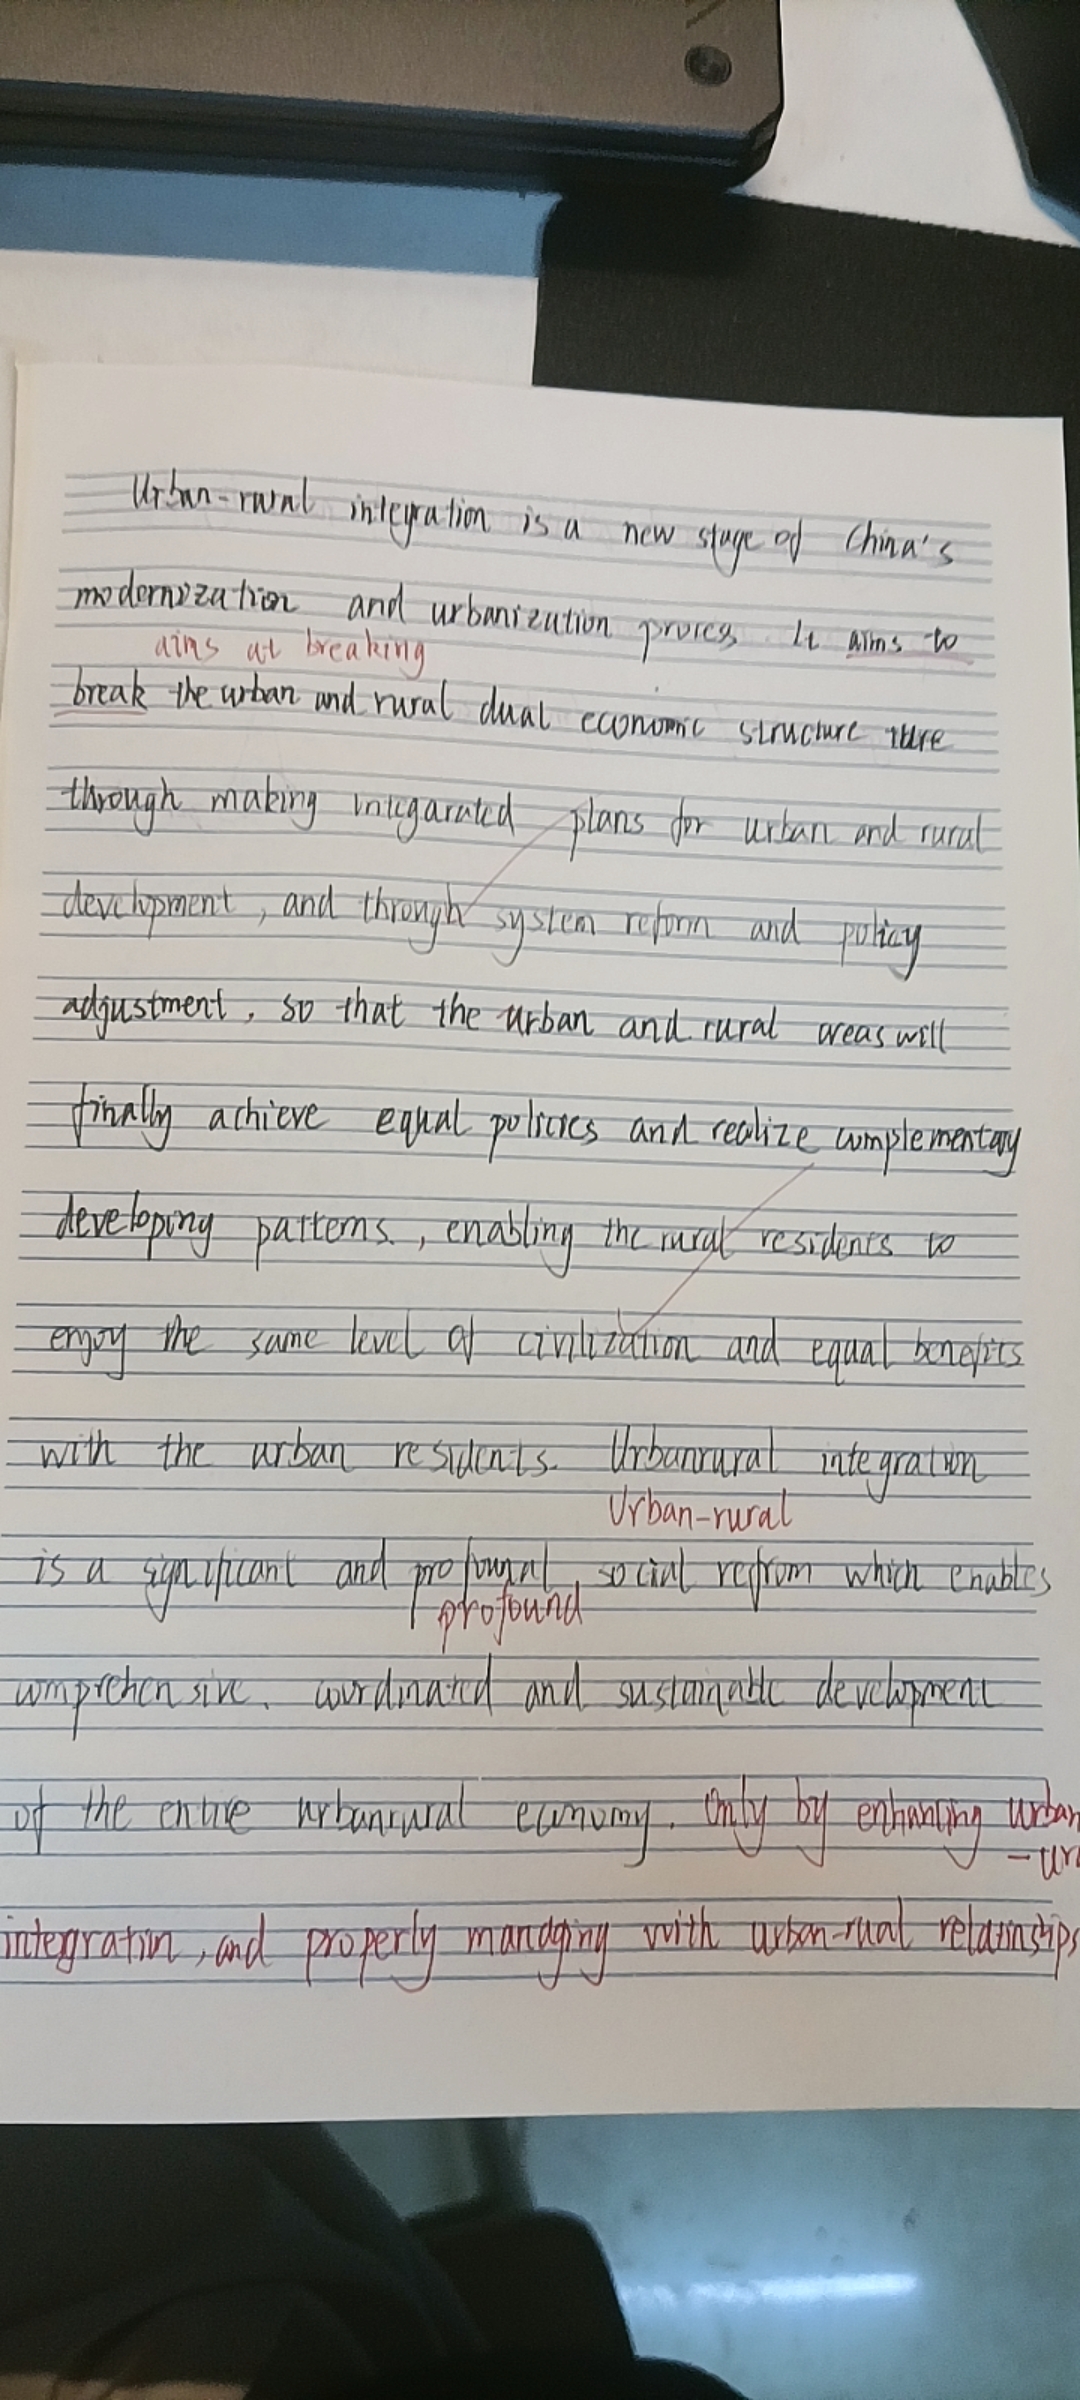 Urban-rural integration is a new stage of China's
modernization and urbanization process. It aims to
aims at breaking
break the urban and rural dual economic structure
through making integarated plans for urban and rural
development, and through system reform and policy
adjustment, so that the urban and rural areas will
finally achieve equal policies and realize complementary
developing patterns, enabling the rural residents to
enjoy the same level of civilization and equal benefits
with the urban residents. Urbanrural integration
Urban-rural
is a significant and profounal social refrom which enables
profound
comprehensive. coordinated and sustainable development
of the entire urbanrural economy. Only by enhancing urban
integration, and properly managing with urban-rual relationships